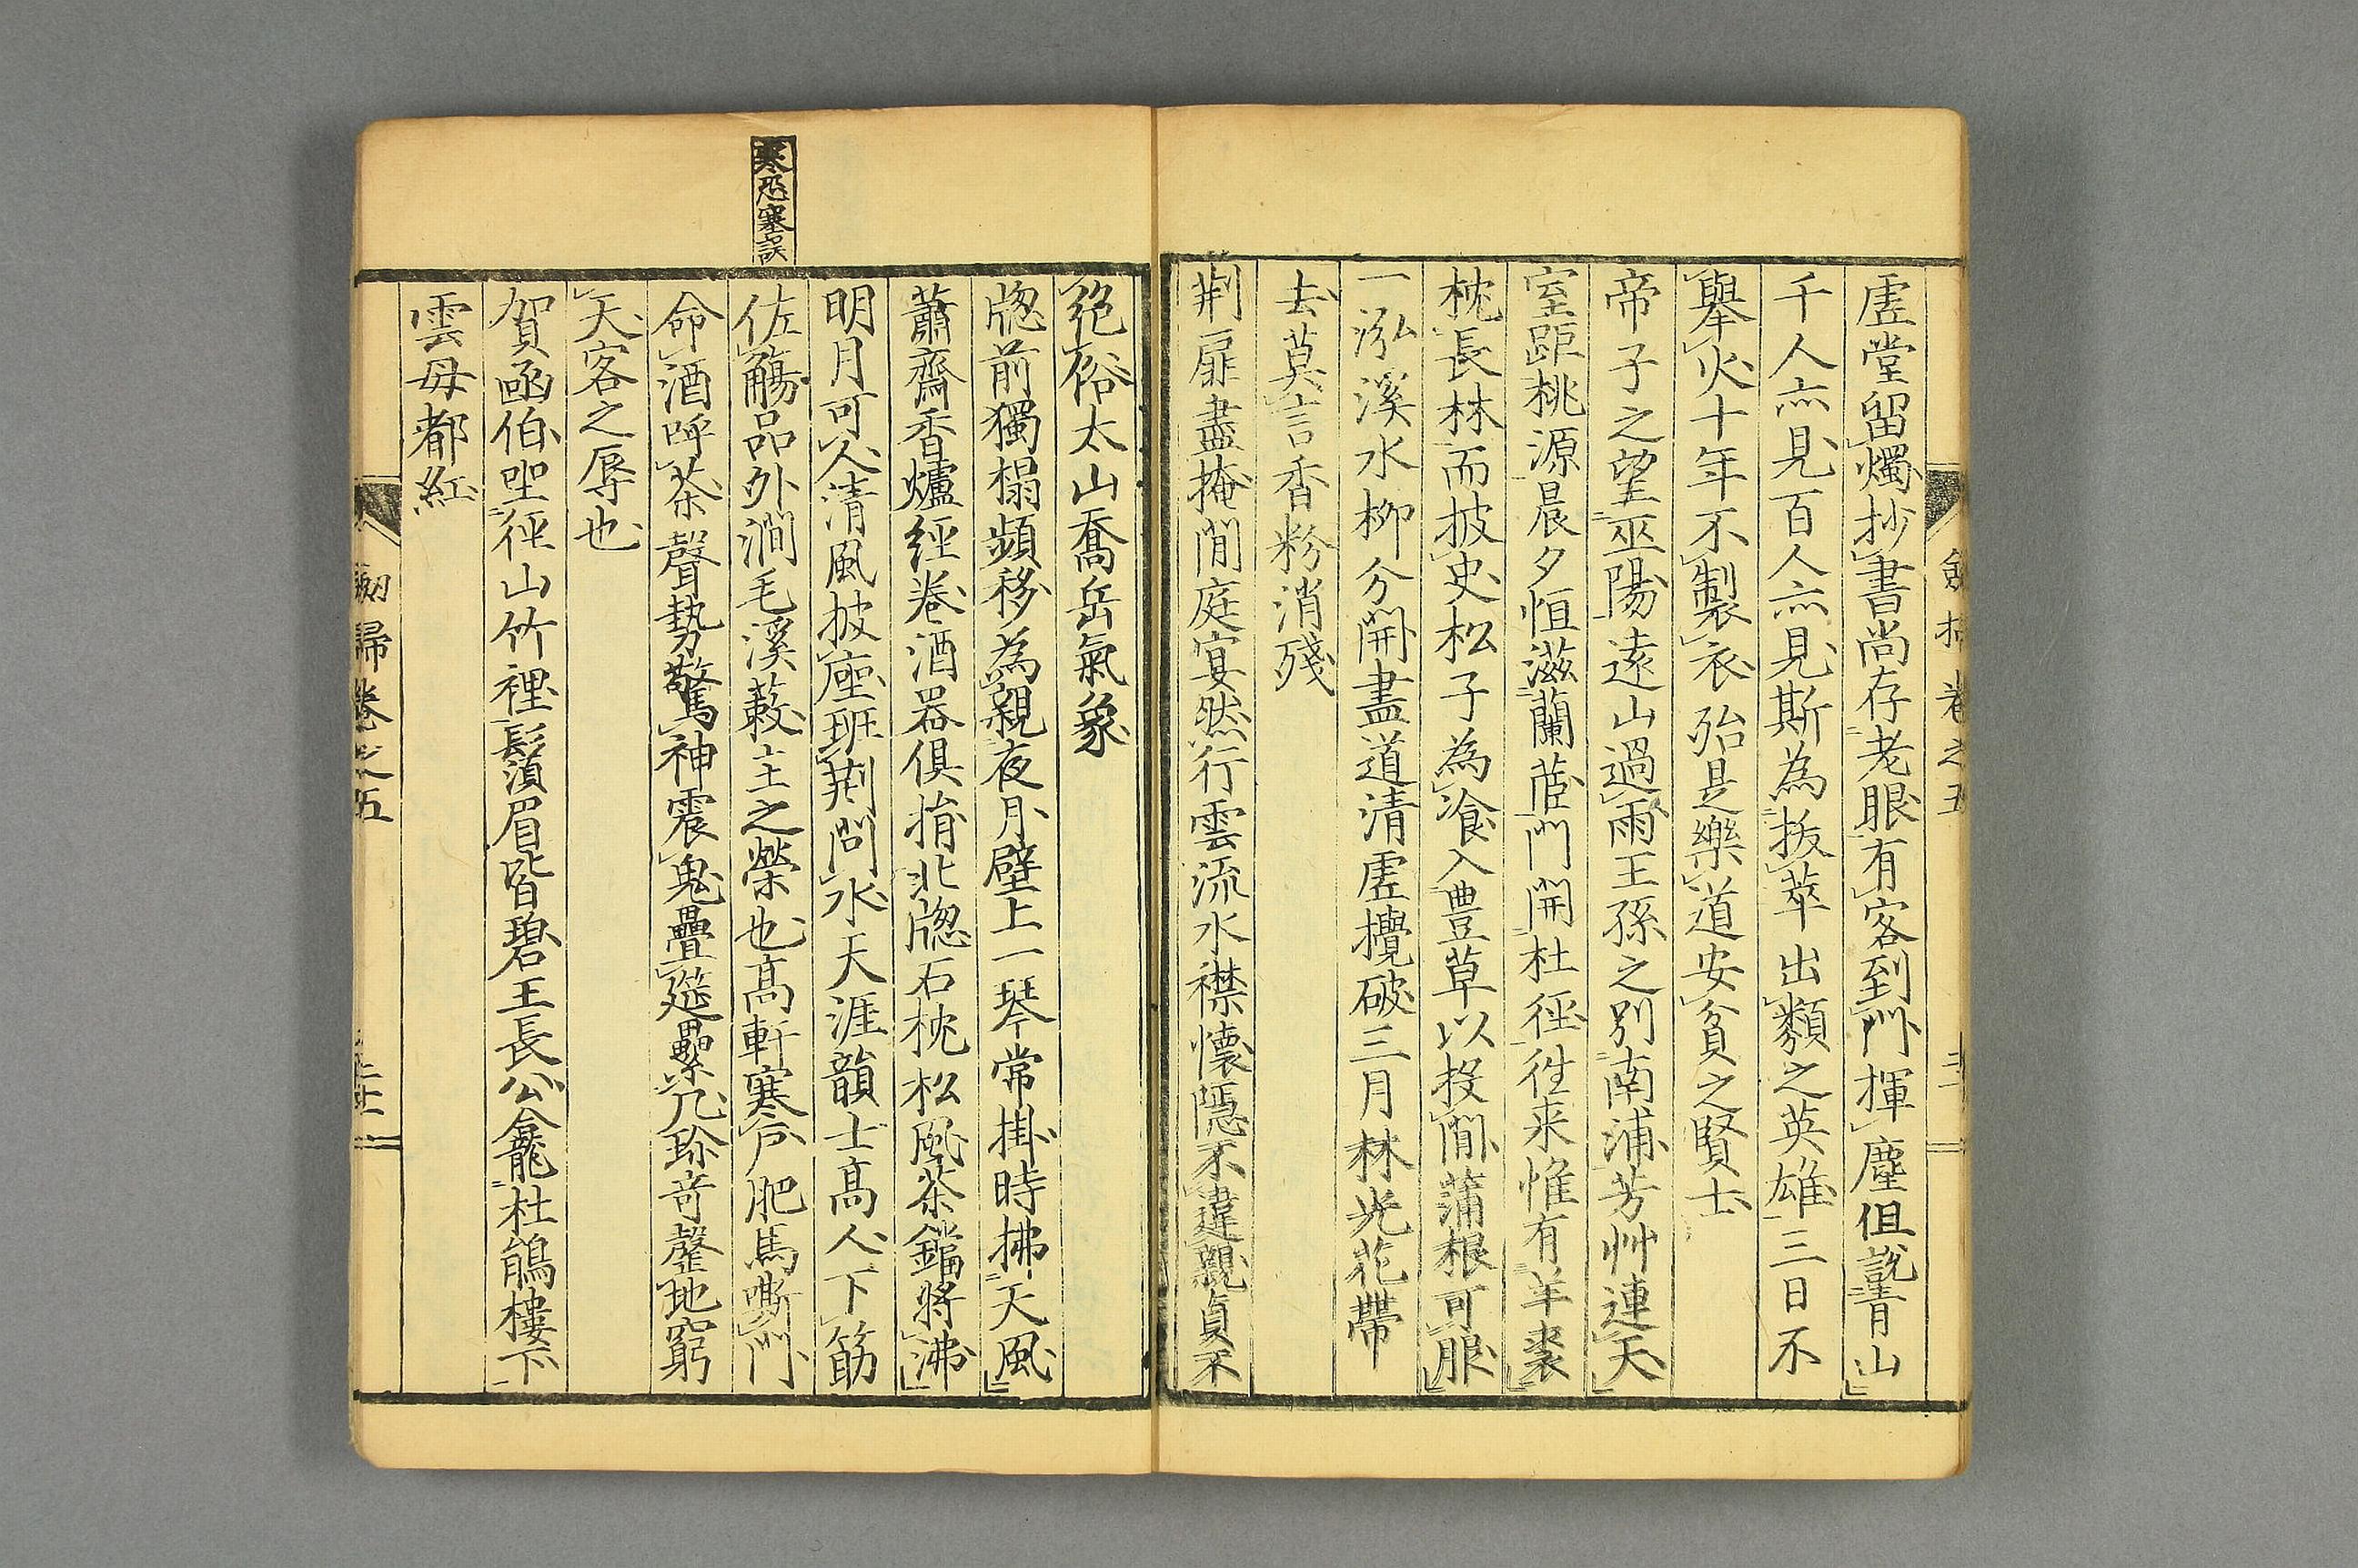 虛堂留燭抄書尚存老眼有客到門揮塵但說青山
千人亦見百人亦見斯為拔萃出類之英雄三日不
舉火十年不製衣殆是樂道安貧之賢士
帝子之望巫陽遠山過雨王孫之別南浦芳艸連天
室距桃源晨夕恒滋蘭茝門開杜徑往来惟有羊裘
枕長林而披史松子為飡入豊草以投閒蒲根可服
一泓溪水柳分開盡道清虛攪破三月林光花帶
去莫言香粉消殘
荆扉晝掩閒庭宴然行雲流水襟懷隱不違親貞不
絕俗太山喬岳氣象
牕前獨榻頻移為親夜月壁上一琴常掛時拂天風
蕭齋香爐經卷酒器俱捐北牕石枕松風茶鐺將沸
明月可人清風披座班荆問水天涯韻士高人下筯
佐觴品外澗毛溪蔌主之榮也高軒寒戶肥馬嘶門
命酒呼茶聲勢驚神震鬼疊筵累几珍奇罄地窮
天客之辱也
賀函伯坐徑山竹裡鬚眉皆碧王長公龕杜鵑樓下
雲母都紅
寒恐塞誤
劒掃卷之五